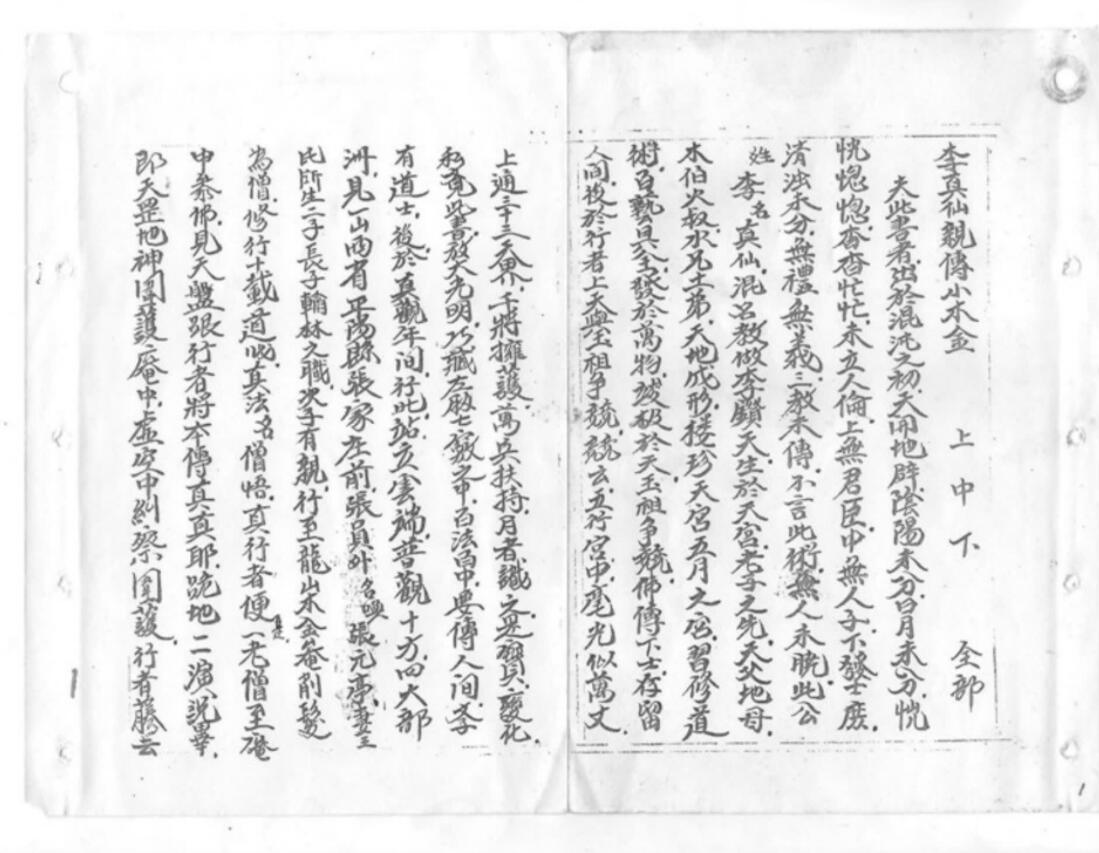 李真仙親傳小木金　上中下　全部
夫此書者出於混沌之初天開地辟陰陽未分日月未分恍
恍惚惚杳杳忙忙未立人倫上無君臣中無人子下發士庶
清浊未分無禮無義三教未傳不言此術無人未脫此公
姓李名真仙混名教做李鑽天生於天宮老子之先天父地母
木伯火叔水兄土弟天地成形接珍天宮五月之宮習修道
術百藝具全發於萬物破於天玉祖爭競佛傳下士存留
人间後於行者上天與玉祖爭競競云五行宮中毫光似萬丈
上通三十三天界千將擁護萬兵扶持月者識之是寶變化
私竟此書放大光明巧藏左殿七竅之中百法皆中要傳人间
有道士後於真觀年间行此站立雲端普觀十方四大部
洲見一山西省平陽縣張家庄前張員外名喚張元亭妻王
氏所生二子長子翰林之職次子有親行至龍山木金菴削髮
為僧修行十載道收真法名僧悟真行者便一老僧至菴
中參佛見天盤張行者將本傳真真耶跪地二演説畢
即天罡地神圍護庵中虛空中糾察圍護行者藤云
1